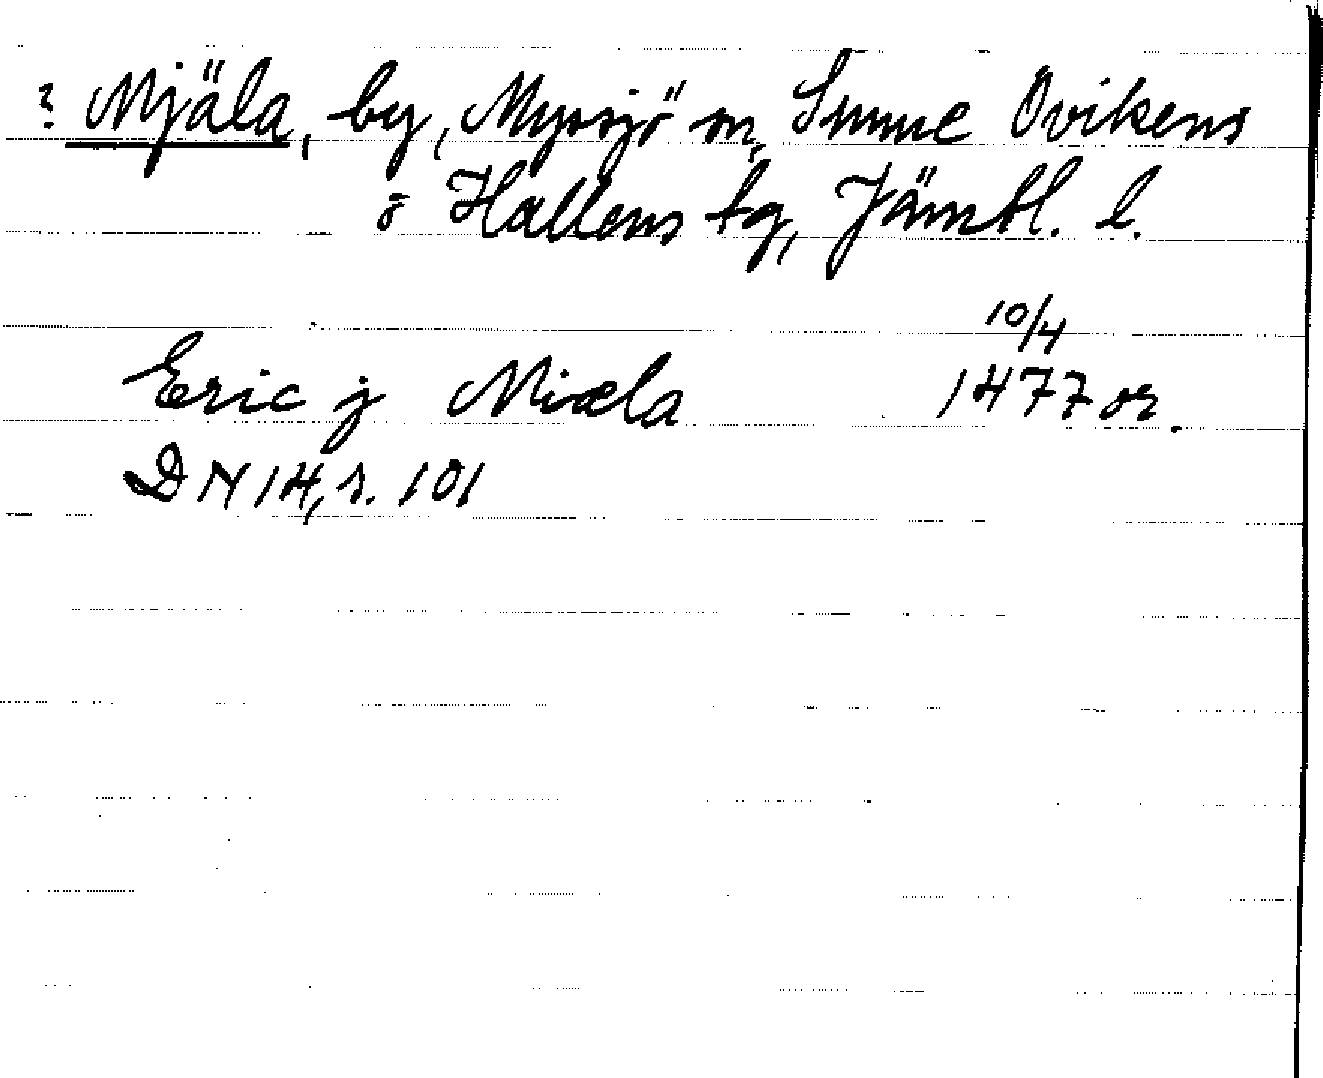 ? Mjäla, by, Myssjö sn, Sunne Ovikens
o Hallens tg, Jämtl. l.
10/4
Eric j Miæla 1477 or.
DN 14, s. 101